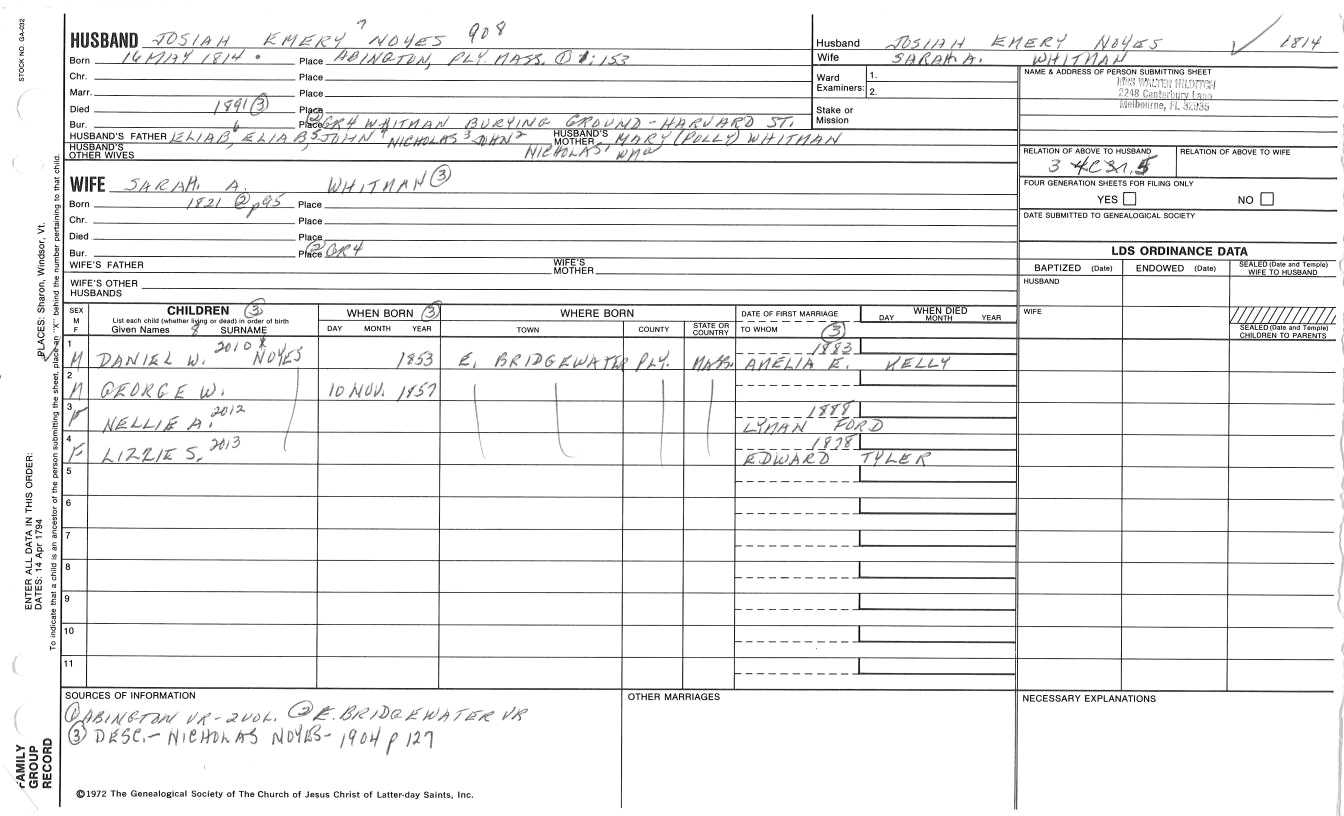 STOCK NO. GA-032
HUSBAND JOSIAH EMERY 7 NOYES 908
Born 16 MAY 1814 Place ABINGTON, PLY. MASS. ① 1:153
Chr. Place
Marr. Place
Died 1891 ③ Place
Bur. Place ② GR4 WHITMAN BURYING GROUND - HARVARD ST.
HUSBAND'S FATHER ELIAB 6, ELIAB 5, JOHN 4 NICHOLAS 3 JOHN 2 HUSBAND'S MOTHER MARY (POLLY) WHITMAN
NICHOLAS 1
HUSBAND'S OTHER WIVES
WIFE SARAH. A. WHITMAN ③
Born 1821 ② p95 Place
Chr. Place
Died Place
Bur. Place ② GR4
WIFE'S FATHER WIFE'S MOTHER
WIFE'S OTHER HUSBANDS
Husband JOSIAH EMERY NOYES ✓ 1814
Wife SARAH A. WHITMAN
Ward Examiners: 1.
2.
Stake or Mission
NAME & ADDRESS OF PERSON SUBMITTING SHEET
MRS WALTER HILDITCH
2248 Canterbury Lane
Melbourne, FL 32935
RELATION OF ABOVE TO HUSBAND RELATION OF ABOVE TO WIFE
FOUR GENERATION SHEETS FOR FILING ONLY
YES NO
DATE SUBMITTED TO GENEALOGICAL SOCIETY
LDS ORDINANCE DATA
BAPTIZED (Date) ENDOWED (Date) SEALED (Date and Temple) WIFE TO HUSBAND
HUSBAND
WIFE
SEALED (Date and Temple) CHILDREN TO PARENTS
SEX M F CHILDREN ③ WHEN BORN ③ WHERE BORN DATE OF FIRST MARRIAGE WHEN DIED
List each child (whether living or dead) in order of birth
Given Names 8 SURNAME DAY MONTH YEAR TOWN COUNTY STATE OR COUNTRY TO WHOM ③ DAY MONTH YEAR
1 M DANIEL W. 2010 NOYES 1853 E. BRIDGEWATER PLY. MASS. 1883 AMELIA E. KELLY
2 M GEORGE W. 10 NOV. 1857
3 F NELLIE A. 2012 1888 LYMAN FORD
4 F LIZZIE S. 2013 1878 EDWARD TYLER
5
6
7
8
9
10
11
SOURCES OF INFORMATION
① ABINGTON VR - 2 VOL. ② E. BRIDGEWATER VR
③ DESC. - NICHOLAS NOYES - 1904 p 127
OTHER MARRIAGES
NECESSARY EXPLANATIONS
©1972 The Genealogical Society of The Church of Jesus Christ of Latter-day Saints, Inc.
FAMILY GROUP RECORD
ENTER ALL DATA IN THIS ORDER:
DATES: 14 Apr 1794
PLACES: Sharon, Windsor, Vt.
To indicate that a child is an ancestor of the person submitting the sheet, place an "X" behind the number pertaining to that child.